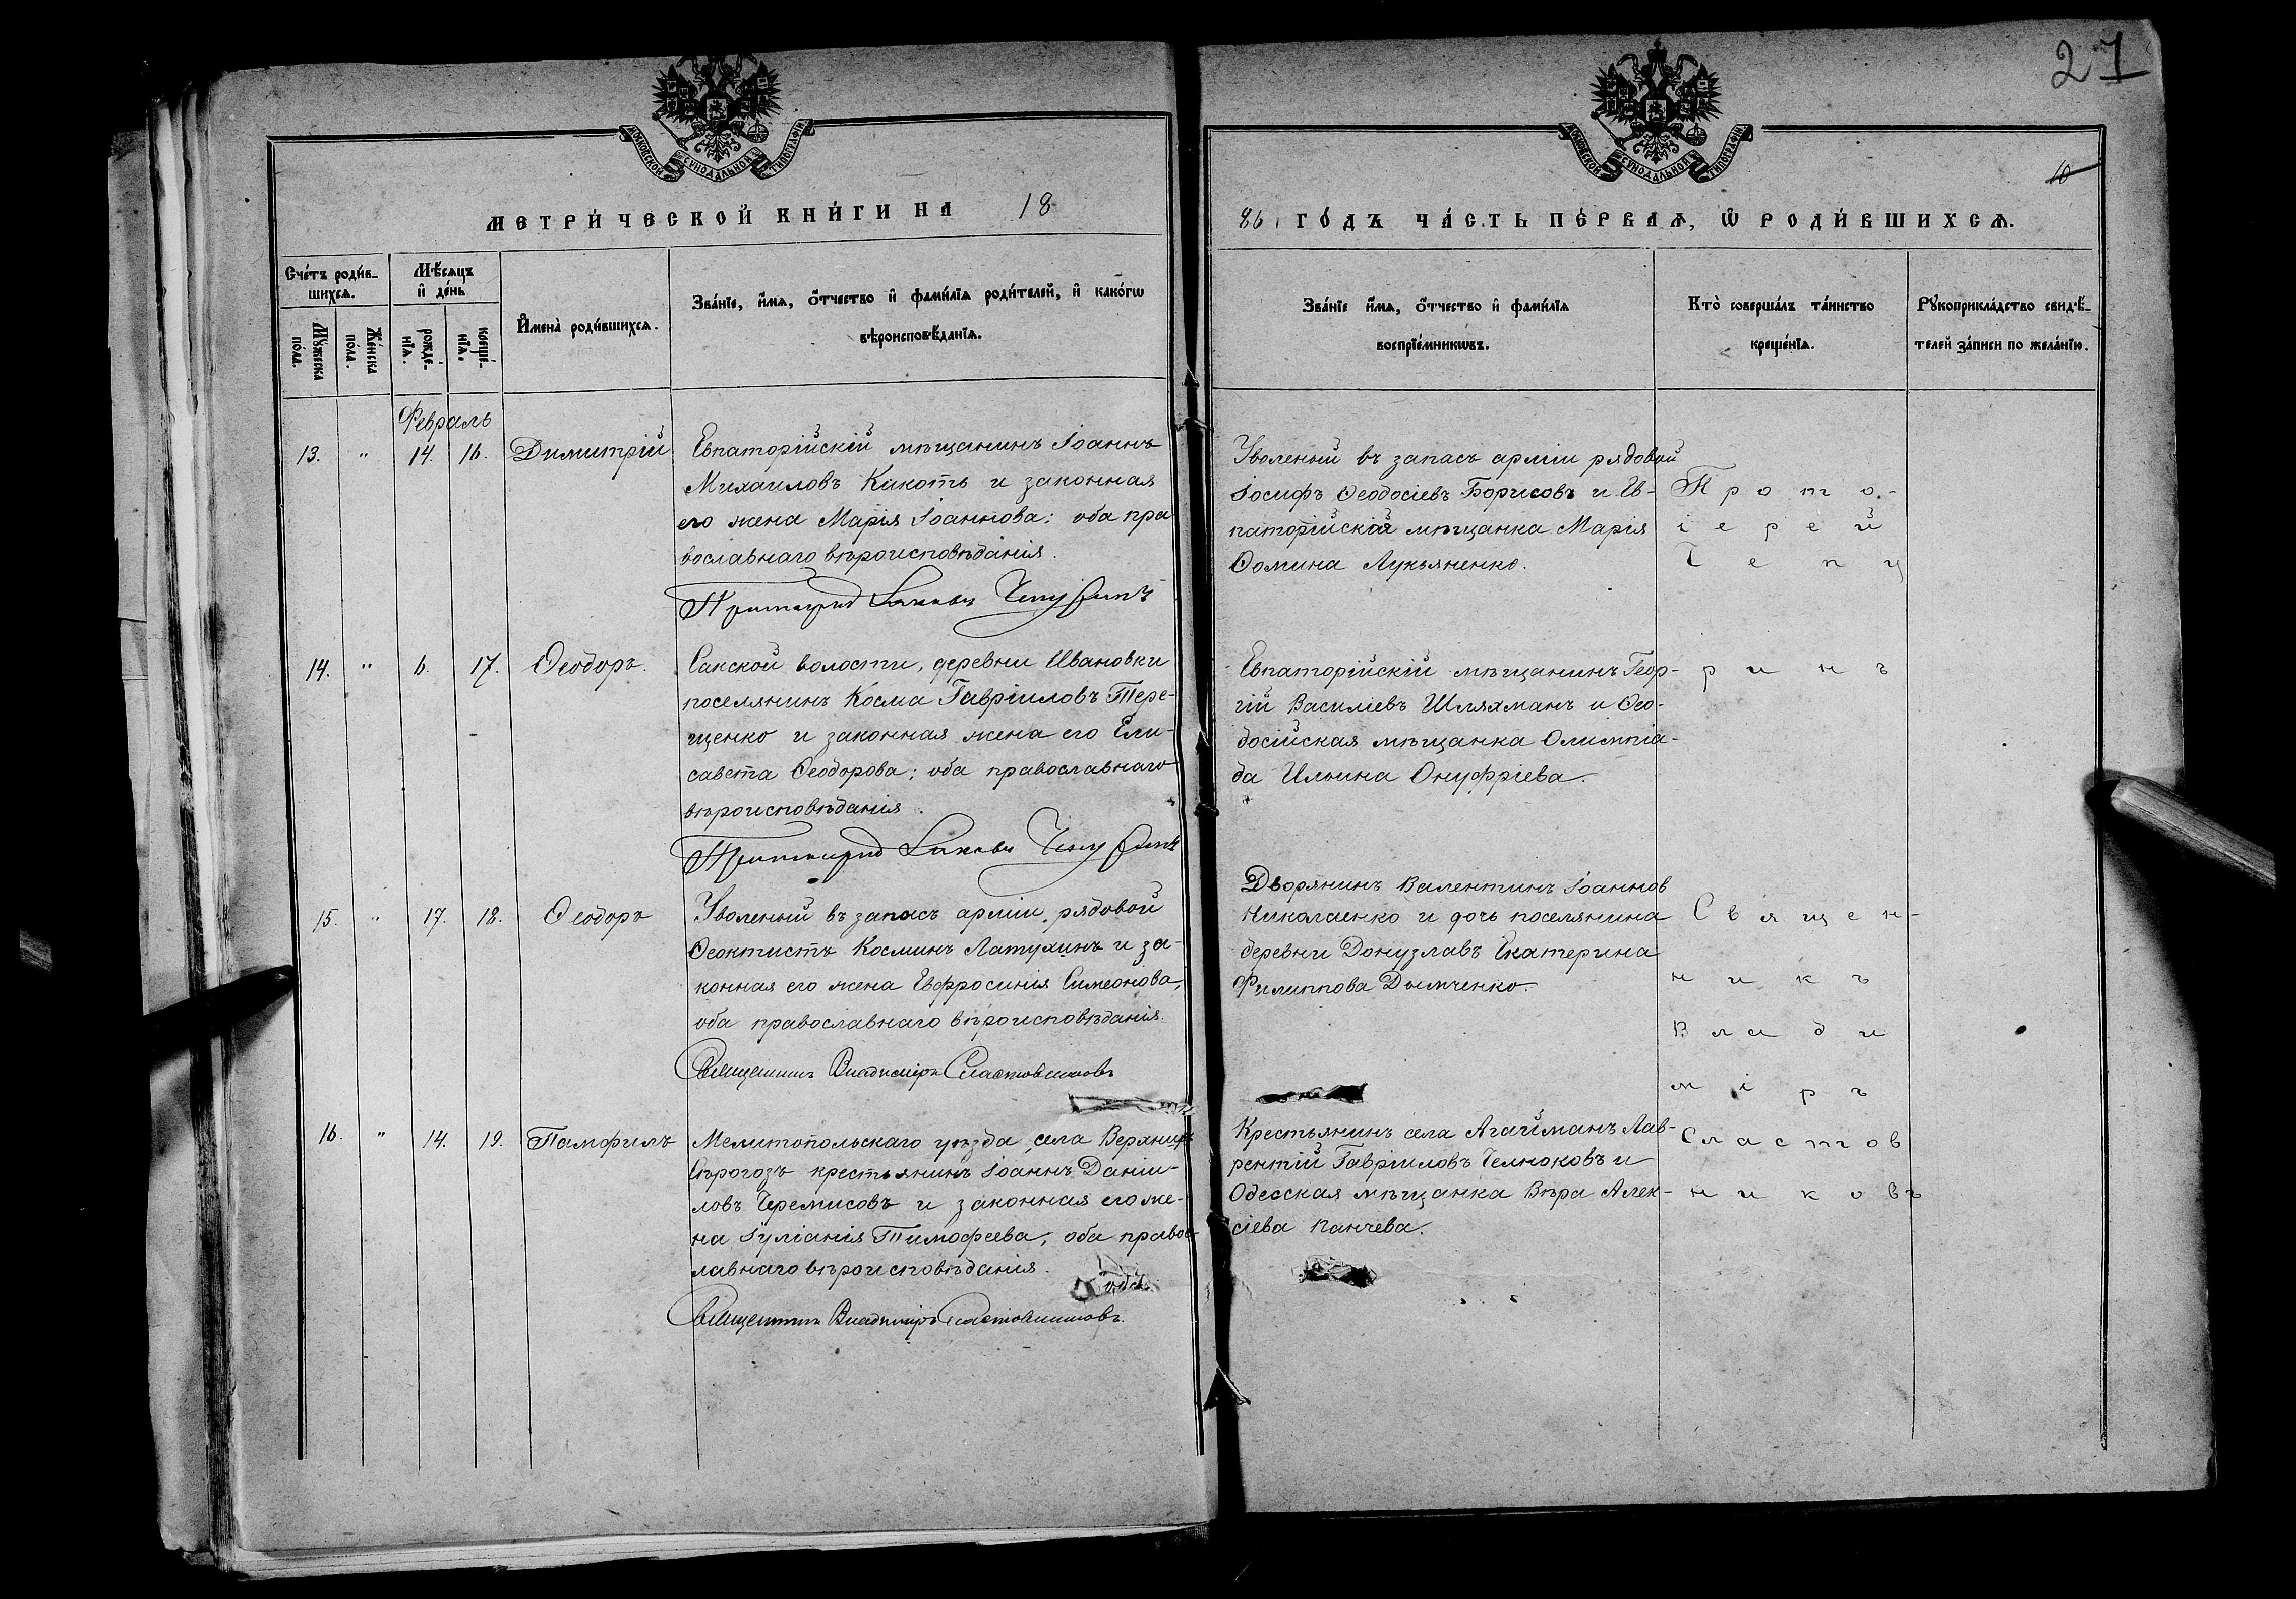 27
10
МОСКОВСКОЙ СѴНОДАЛЬНОЙ ТИПОГРАФІИ
МОСКОВСКОЙ СѴНОДАЛЬНОЙ ТИПОГРАФІИ
МЕТРИ́ЧЕСКОЙ КНИ́ГИ НА 18
86 ГО́ДЪ ЧА́СТЬ ПЕ́РВАЯ, Ѡ РОДИ́ВШИХСЯ.
Сче́тъ роди́в-
шихся.
Мꙋжеска по́ла.
Же́нска по́ла.
Мѣ́сяцъ
и҆ де́нь
рожде́-
нїя.
креще́-
нїя.
И҆мена̀ роди́вшихся.
Зва́нїе, и҆́мя, ѻ҆́тчество и҆ фами́лїя роди́телей, и҆ како́гѡ
вѣроисповѣ́данїя.
Зва́нїе и҆́мя, ѻ҆́тчество и҆ фами́лїя
воспрїе́мникѡвъ.
Кто̀ соверша́лъ та́инство
креще́нїя.
Рꙋкоприкла́дство свидѣ́-
телей за́писи по жела́нїю.
Февраль
13. " 14. 16. Димитрій
Евпаторійскій мѣщанинъ Іоаннъ
Михаиловъ Какоть и законная
его жена Марія Іоаннова: оба пра
вославнаго вѣроисповѣданія.
Протоіерей Іаковъ Чепуринъ
Уволеный въ запасъ арміи рядовой
Іосифъ Ѳеодосіевъ Борисовъ и Ев-
паторійская мѣщанка Марія
Ѳомина Лукьяненко.
Прото-
іерей
Чепу
14. " 6. 17. Ѳеодоръ.
Сакской волости, деревни Ивановки
поселянинъ Косма Гавріиловъ Тере-
щенко и законная жена его Ели-
савета Ѳеодорова; оба православнаго
вѣроисповѣданія.
Протоіерей Іаковъ Чепуринъ
Евпаторійскій мѣщанинъ Геор-
гій Василіевъ Шляхманъ и Ѳео-
досійская мѣщанка Олимпіа-
да Ильина Онуфріева.
ринъ
15. " 17. 18. Ѳеодоръ
Уволеный въ запасъ арміи, рядовой
Ѳеоктистъ Косминъ Латухинъ и за-
конная его жена Евфросинія Симеонова,
оба православнаго вѣроисповѣданія.
Священникъ Владиміръ Сластовниковъ
Дворянинъ Валентинъ Іоаннов
Николаенко и дочь поселянина
деревни Донузлавъ Екатерина
Филиппова Дымченко.
Священ-
никъ
Влади
міръ
Сластов
никовъ
16. " 14. 19. Памфилъ
Мелитопольскаго уѣзда, села Верхних
Сѣрогозъ крестьянинъ Іоаннъ Даніи-
ловъ Черемисовъ и законная его же-
на Іуліанія Тимофеева, оба правос-
лавнаго вѣроисповѣданія.
Священникъ Владиміръ Сластовниковъ.
Крестьянинъ села Агайманъ Лав-
рентій Гавріиловъ Челноковъ и
Одесская мѣщанка Вѣра Алек-
сіева Панчева.